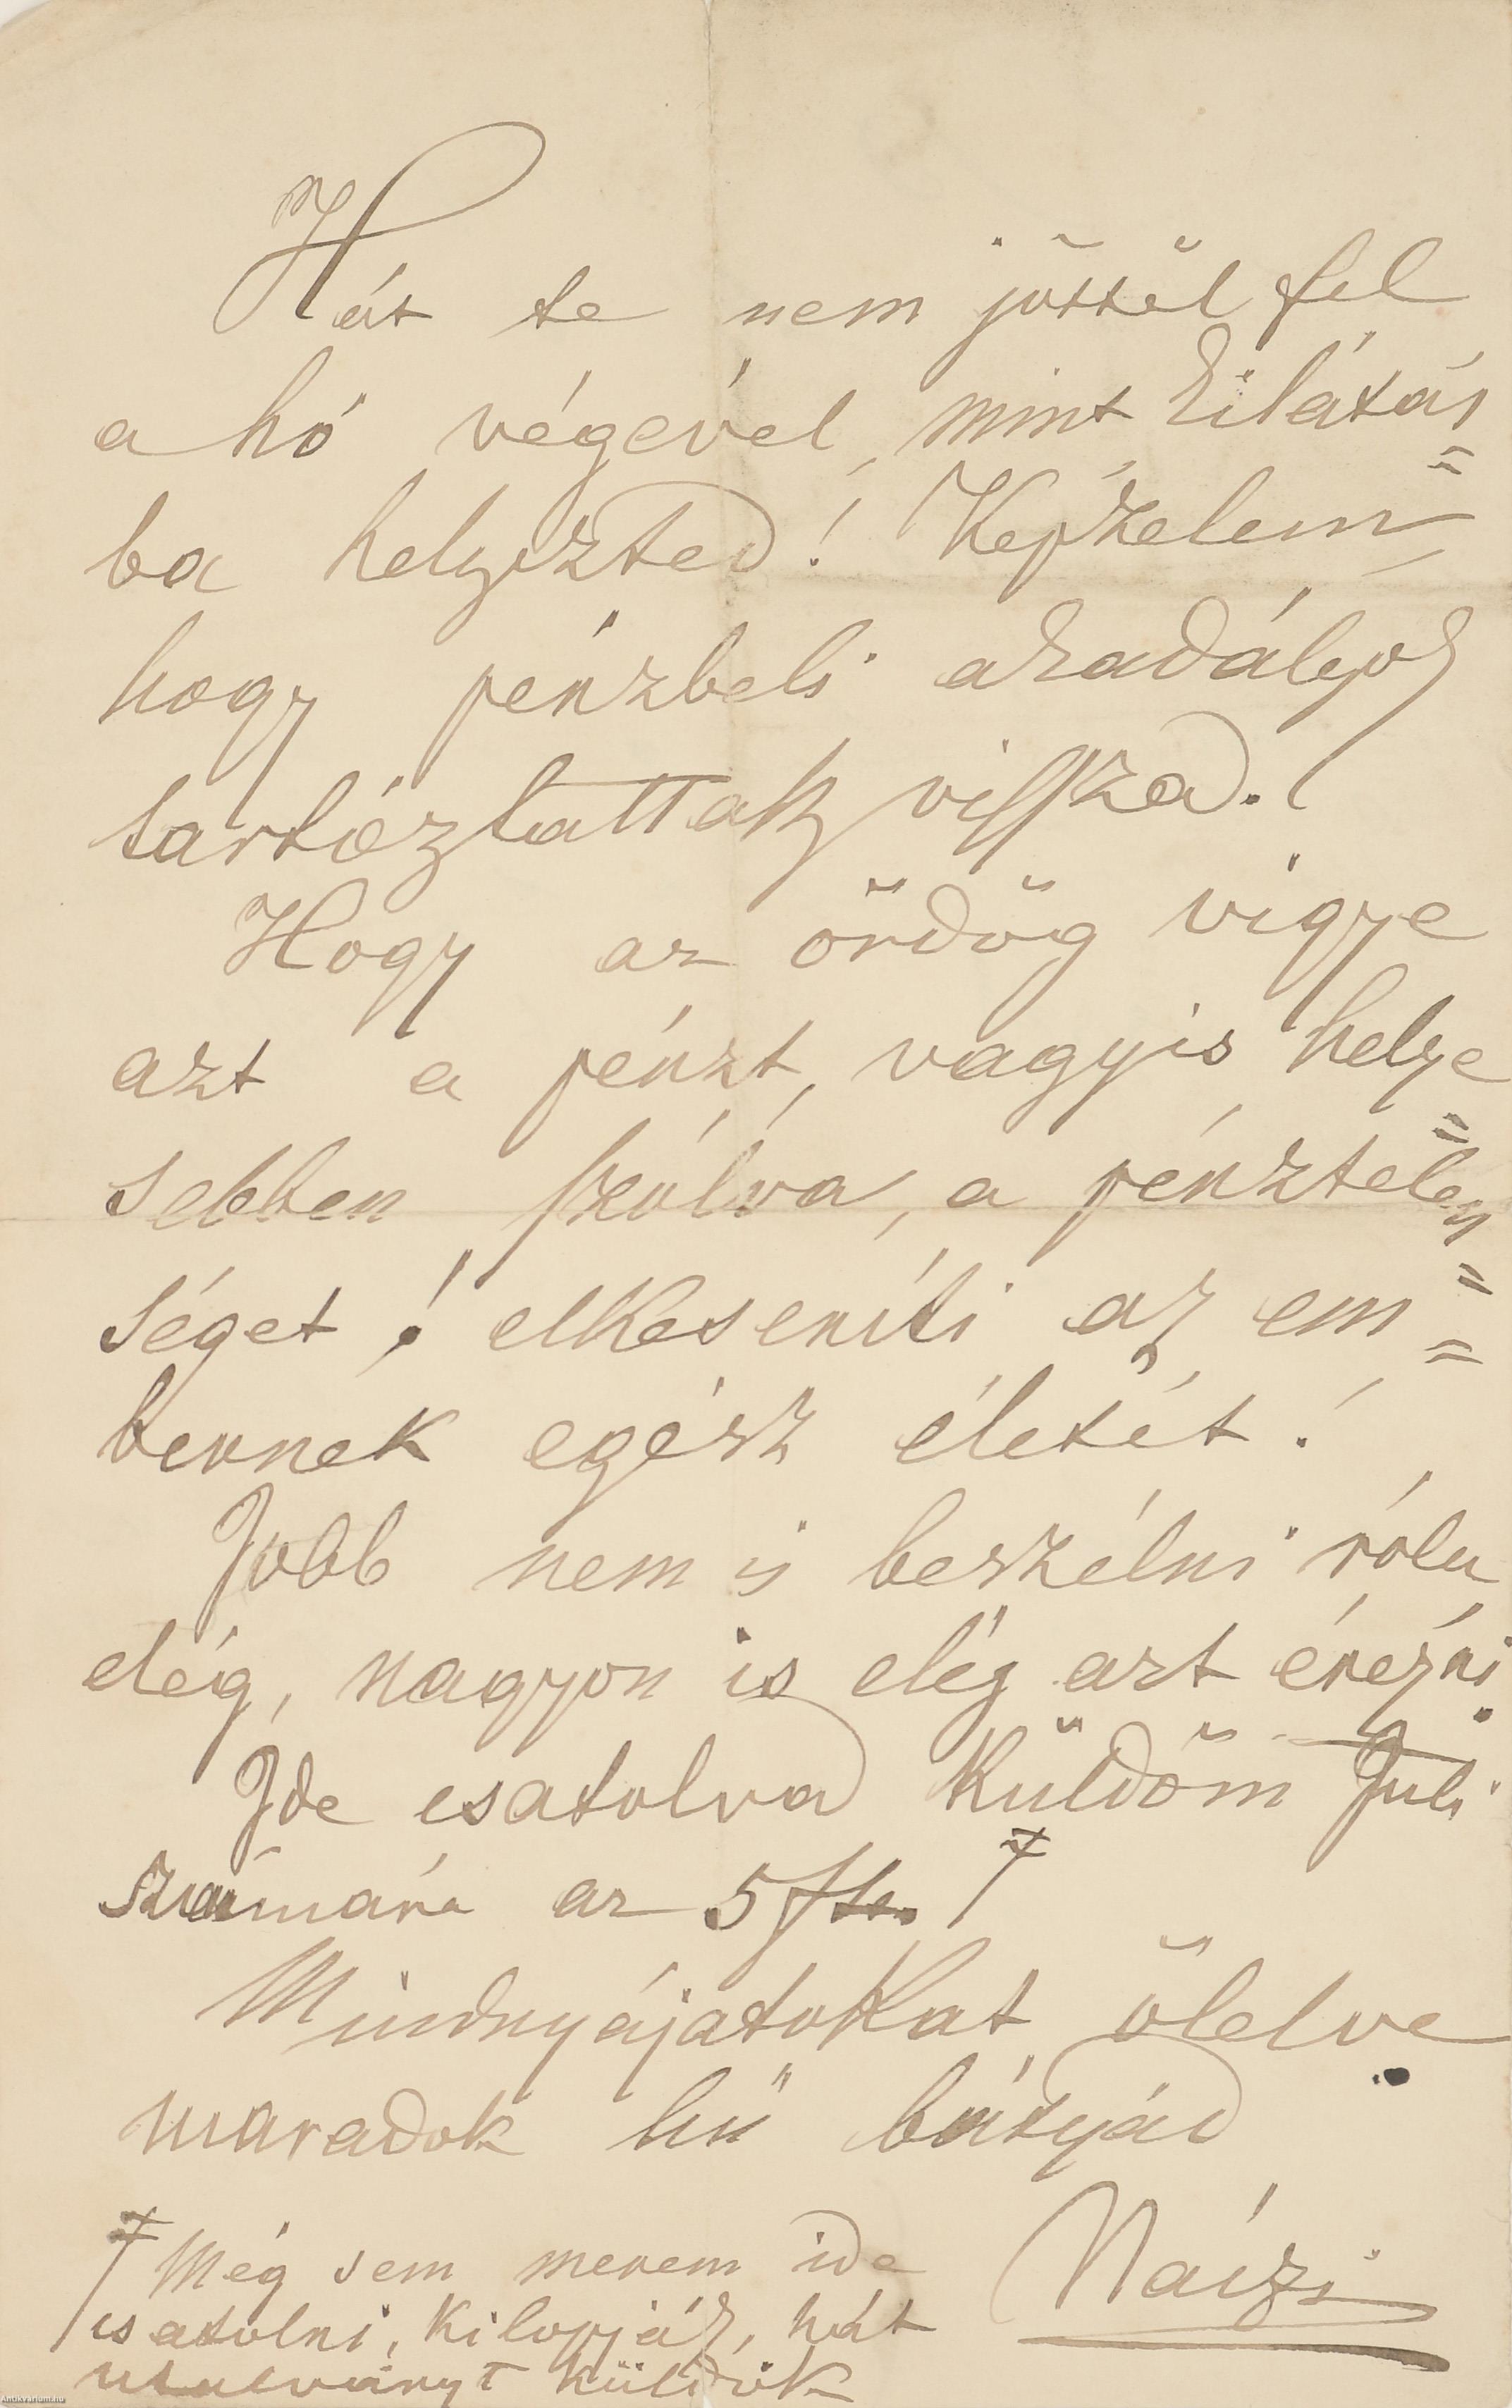 Hát te nem jöttél fel
a hó végével, mint kilátás=
ba helyezted! Képzelem,
hogy pénzbeli akadályok
tartóztattak vissza.!
Hogy az ördög vigye
azt a pénzt, vagyis helye=
sebben szólva, a pénztelen=
séget! elkeseríti az em=
bernek egész életét!
Jobb nem is beszélni róla,
elég, nagyon is elég azt érezni.
Ide csatolva küldöm Juli
számára az 5 ft. †
Mindnyájatokat ölelve
maradok hű bátyád
Náczi
† Még sem merem ide
csatolni, kilopják, hát
utalványt küldök
Antikvarium.hu